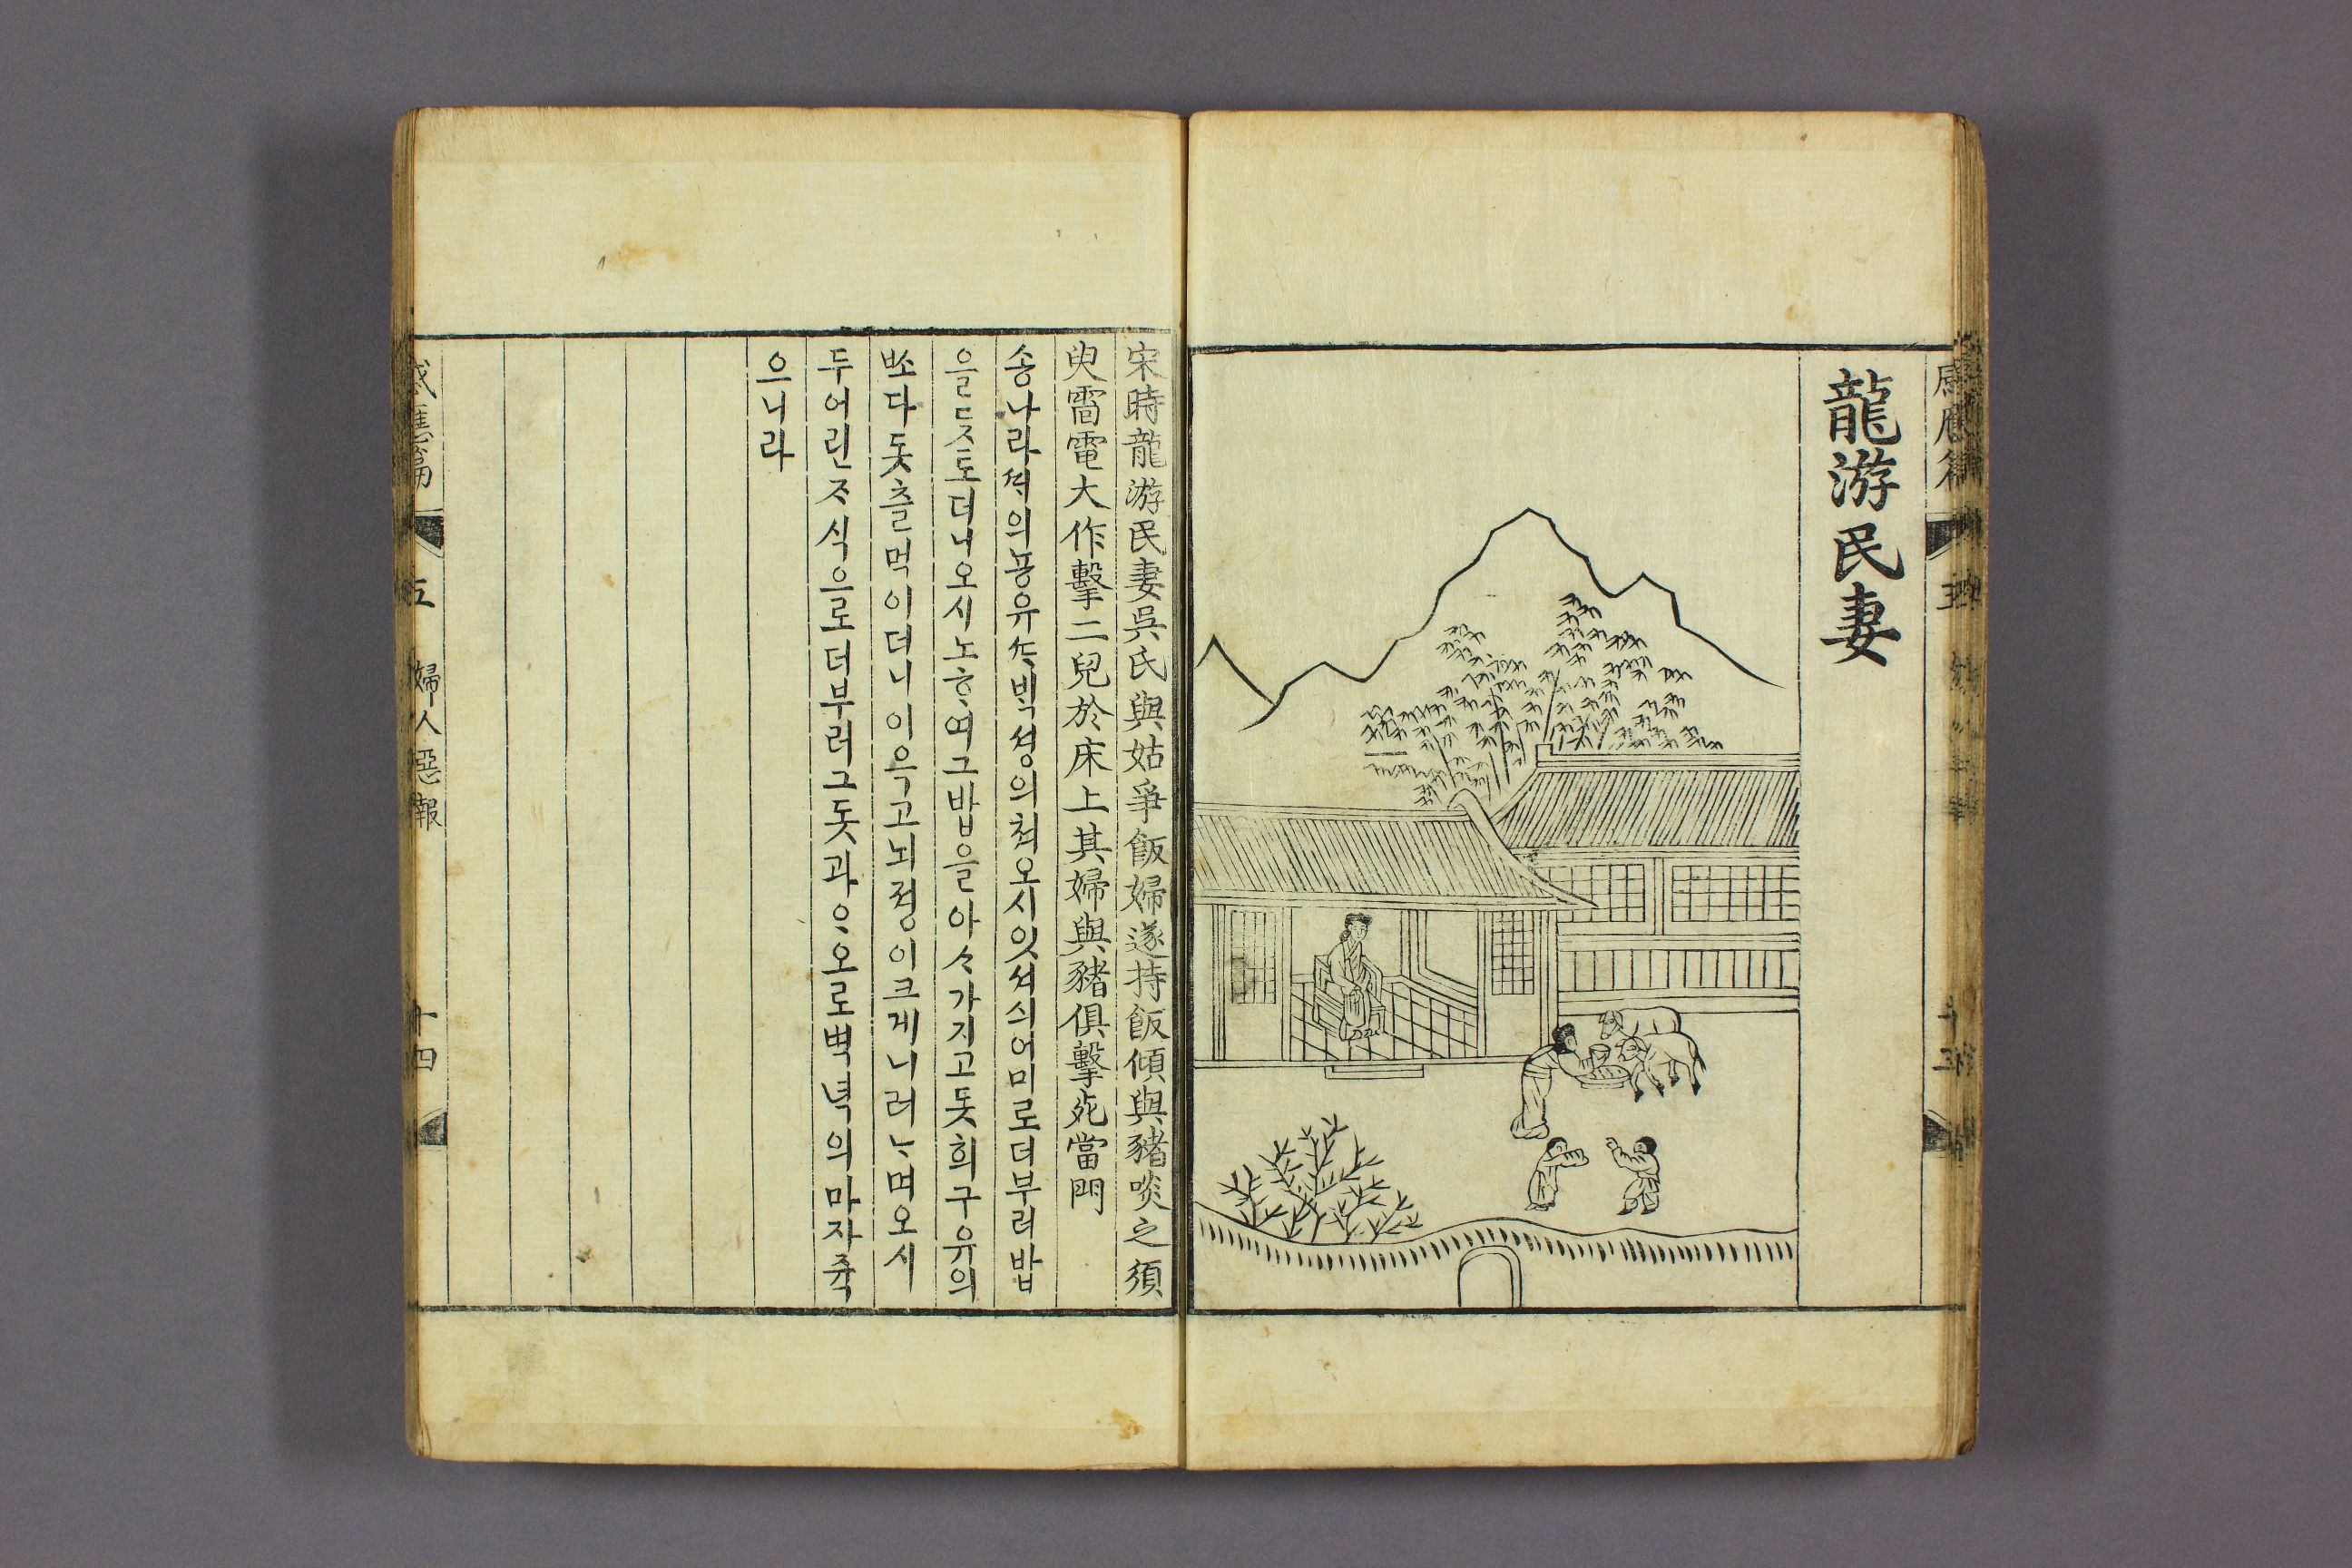 龍游民妻
宋時龍游民妻吳氏與姑爭飯婦遂持飯傾與豬啖之須
臾雷電大作擊二兒於床上其婦與豬俱擊死當門
송나라ᄯᅢ의뇽유ᄯᅡᄇᆡᆨ셩의쳐오시잇셔싀어미로더부러밥
을ᄃᆞ토더니오시노ᄒᆞ여그밥을아ᄉᆞ가지고돗희구유의
ᄡᅩ다돗츨먹이더니이윽고뇌졍이크게니러ᄂᆞ며오시
두어린ᄌᆞ식으로더부러그돗과ᄋᆞ오로벽녁의마자쥭
으니라
感應篇 五 婦人惡報 十四